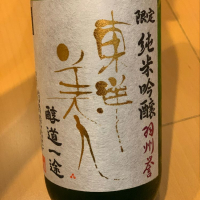 限定
純米吟醸 羽州誉
東洋美人
醇道一途